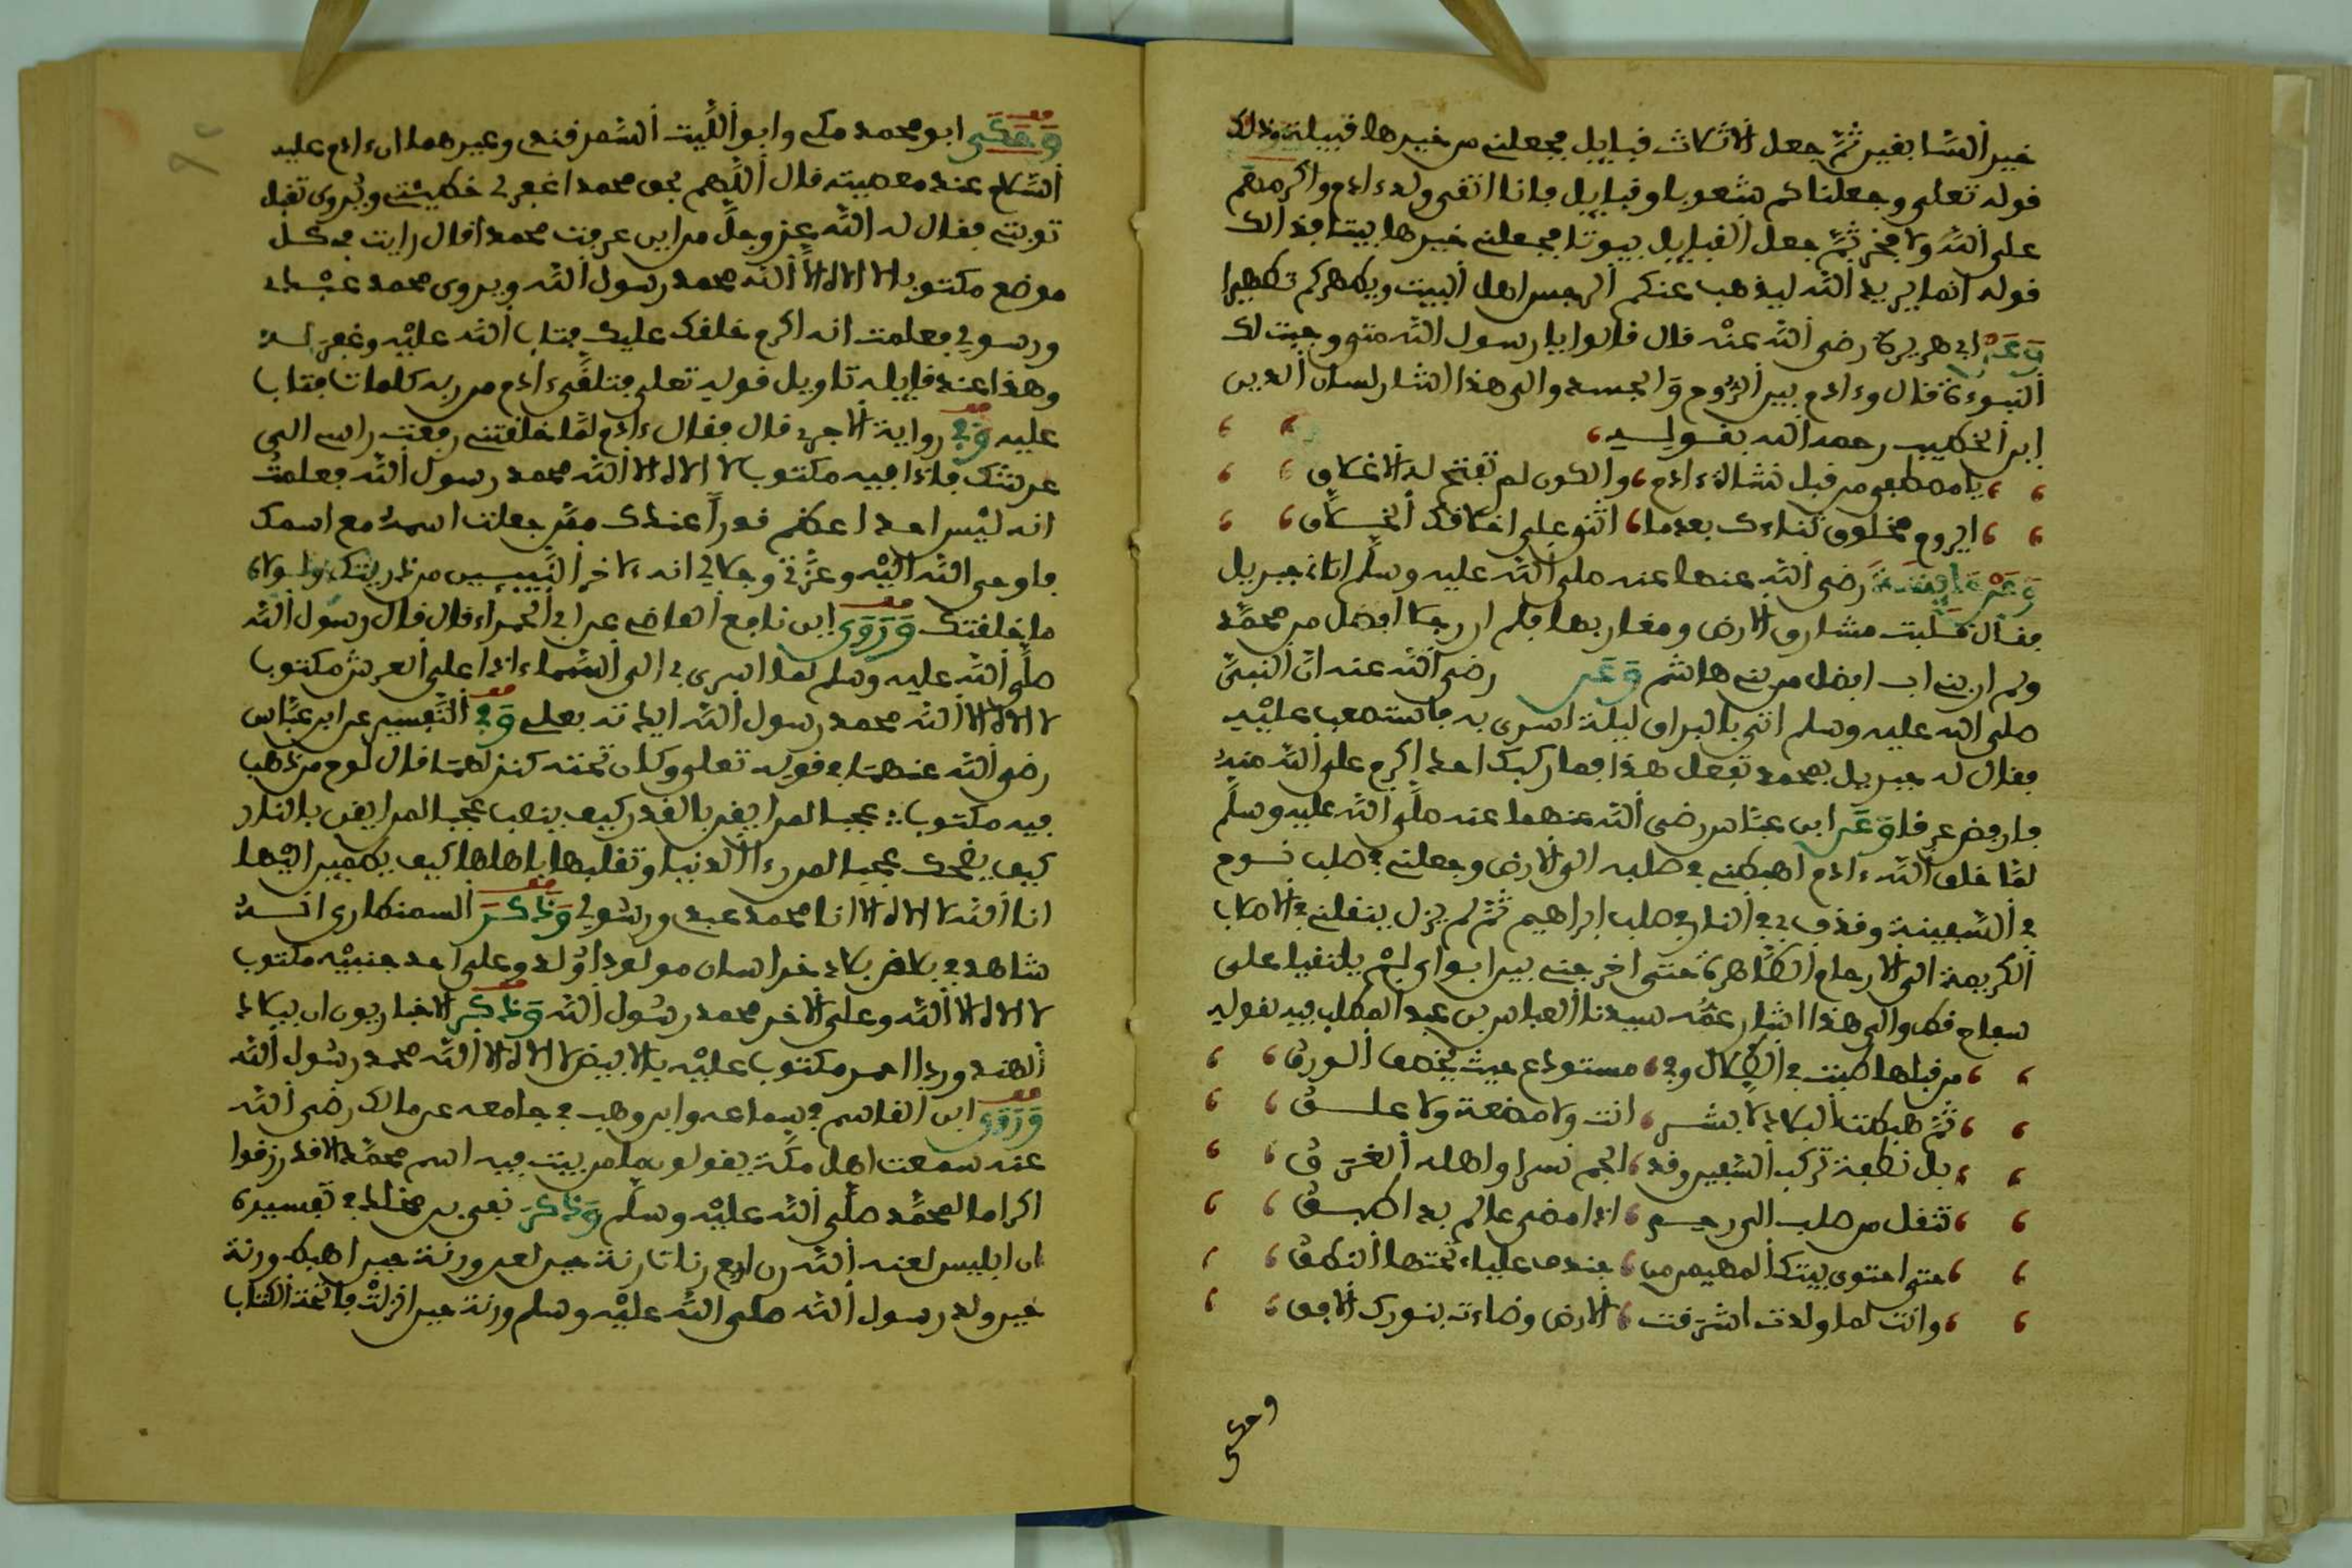 خير السابقين ثم جعل الاثلاث قبايل فجعلني من خيرها قبيلة وذلك
قوله تعلى وجعلناكم شعوبا وقبايل فانا اتقى ولد ءادم واكرمهم
على الله ولا فخر ثم جعل القبايل بيوتا فجعلني خيرها بيتا فذالك
قوله انما يريد الله ليذهب عنكم الرجس اهل البيت ويطهركم تطهيرا
وعن ابي هريرة رضي الله عنه قال قالوا يا رسول الله متى وجبت لك
النبوءة قال وءادم بين الروح والجسد والى هذا اشار لسان الدين
ابن الخطيب رحمه الله بقوليه
يا مصطفى من قبل نشاة ءادم والكون لم تفتح له الاغلاق
ايروم مخلوق ثناءك بعدما اثنى على اخلاقك الخلاق
وعن عايشة رضي الله عنها عنه صلى الله عليه وسلم اتاني جبريل
فقال قلبت مشارق الارض ومغاربها فلم ار رجلا افضل من محمد
ولم ار بني اب افضل من بني هاشم وعن رضي الله عنه ان النبي
صلى الله عليه وسلم اتي بالبراق ليلة اسرى به فاستصعب عليه
فقال له جبريل بمحمد تفعل هذا فما ركبك احد اكرم على الله منه
فارفض عرقا وعن ابن عباس رضي الله عنهما عنه صلى الله عليه وسلم
لما خلق الله ءادم اهبطني في صلبه الى الارض وجعلني في صلب نوح
في السفينة وقذف بي في النار في صلب ابراهيم ثم لم يزل ينقلني في الاصلاب
الكريمة الى الارحام الطاهرة حتى اخرجني بين ابواي لم يلتقيا على
سفاح قط والى هذا اشار عمه سيدنا العباس بن عبد المطلب فيه بقوليه
من قبلها طبت في الظلال وفي مستودع حيث يخصف الورق
ثم هبطت البلاد لا بشر انت ولا مضغة ولا علق
بل نطفة تركب السفين وقد الجم نسرا واهله الغرق
تنقل من صلب الى رحم اذا مضى عالم بدا طبق
حتى احتوى بيتك المهيمن من خندف علياء تحتها النطق
وانت لما ولدت اشرقت الارض وضاءت بنورك الافق
وحكى
وحكى ابو محمد مكي وابو الليث السمرقندي وغيرهما ان ءادم عليه
السلام عند معصيته قال اللهم بحق محمد اغفر لي خطيئتي ويروى تقبل
توبتي فقال له الله عز وجل من اين عرفت محمدا قال رايت في كل
موضع مكتوبا لا اله الا الله محمد رسول الله ويروى محمد عبدي
ورسولي فعلمت انه اكرم خلقك عليك فتاب الله عليه وغفر له
وهذا عند قايله تاويل قوله تعلى فتلقى ءادم من ربه كلمات فتاب
عليه وفي رواية الاجري قال فقال ءادم لما خلقتني رفعت راسي الى
عرشك فاذا فيه مكتوب لا اله الا الله محمد رسول الله فعلمت
انه ليس احد اعظم قدرا عندك ممن جعلت اسمه مع اسمك
فاوحى الله اليه وعزتي وجلالي انه ءلاخر النبيين من ذريتك ولولاه
ما خلقتك وروى ابن نافع القاضي عن ابي الحمراء قال قال رسول الله
صلى الله عليه وسلم لما اسري بي الى السماء اذا على العرش مكتوبا
لا اله الا الله محمد رسول الله ايدته بعلي وفي التفسير عن ابن عباس
رضي الله عنهما في قوله تعلى وكان تحته كنز لهما قال لوح من ذهب
فيه مكتوب عجبا لمن ايقن بالقدر كيف ينصب عجبا لمن ايقن بالنار
كيف يضحك عجبا لمن رءا الدنيا وتقلبها باهلها كيف يطمين اليها
انا الله لا اله الا انا محمد عبدي ورسولي وذكر السمنطاري انه
شاهد في بعض بلاد خراسان مولودا ولد وعلى احد جنبيه مكتوب
لا اله الا الله وعلى الاخر محمد رسول الله وذكر الاخباريون ان ببلاد
الهند وردا احمر مكتوب عليه بالابيض لا اله الا الله محمد رسول الله
وروى ابن القاسم في سماعه وابن وهب في جامعه عن مالك رضي الله
عنه سمعت اهل مكة يقولون ما من بيت فيه اسم محمد الا قد رزقوا
اكراما لمحمد صلى الله عليه وسلم وذكر بقي بن مخلد في تفسيره
ان ابليس لعنه الله رن اربع رنات رنة حين لعن ورنة حين اهبط ورنة
حين ولد رسول الله صلى الله عليه وسلم ورنة حين انزلت فاتحة الكتاب